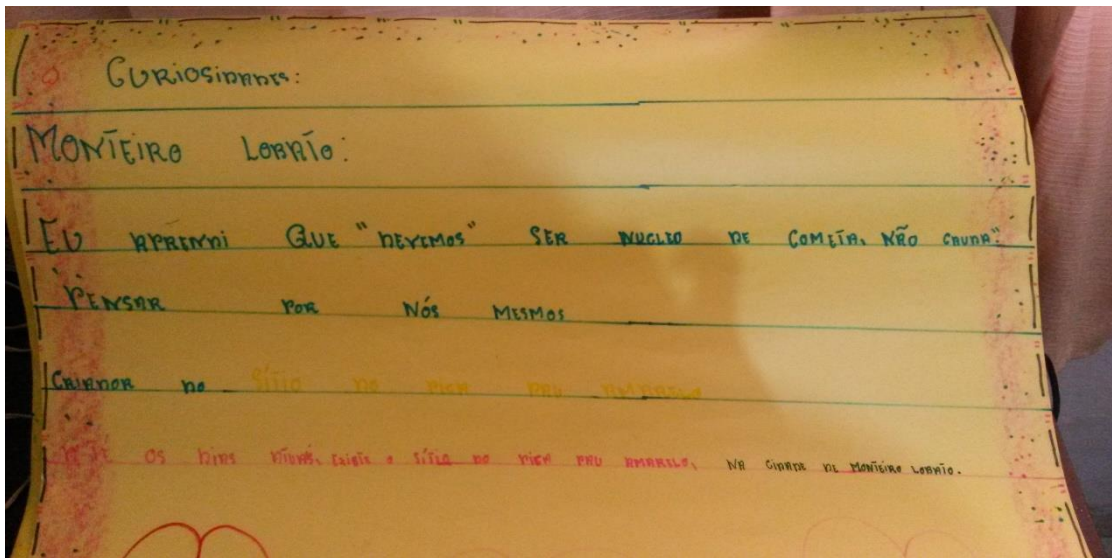 CURIOSIDADES:
MONTEIRO LOBATO:
EU APRENDI QUE "DEVEMOS" SER NUCLEO DE COMETA, NÃO CAUDA".
PENSAR POR NÓS MESMOS
CRIADOR DO SÍTIO DO PICA PAU AMARELO
ATÉ OS DIAS ATUAIS, EXISTE O SÍTIO DO PICA PAU AMARELO, NA CIDADE DE MONTEIRO LOBATO.